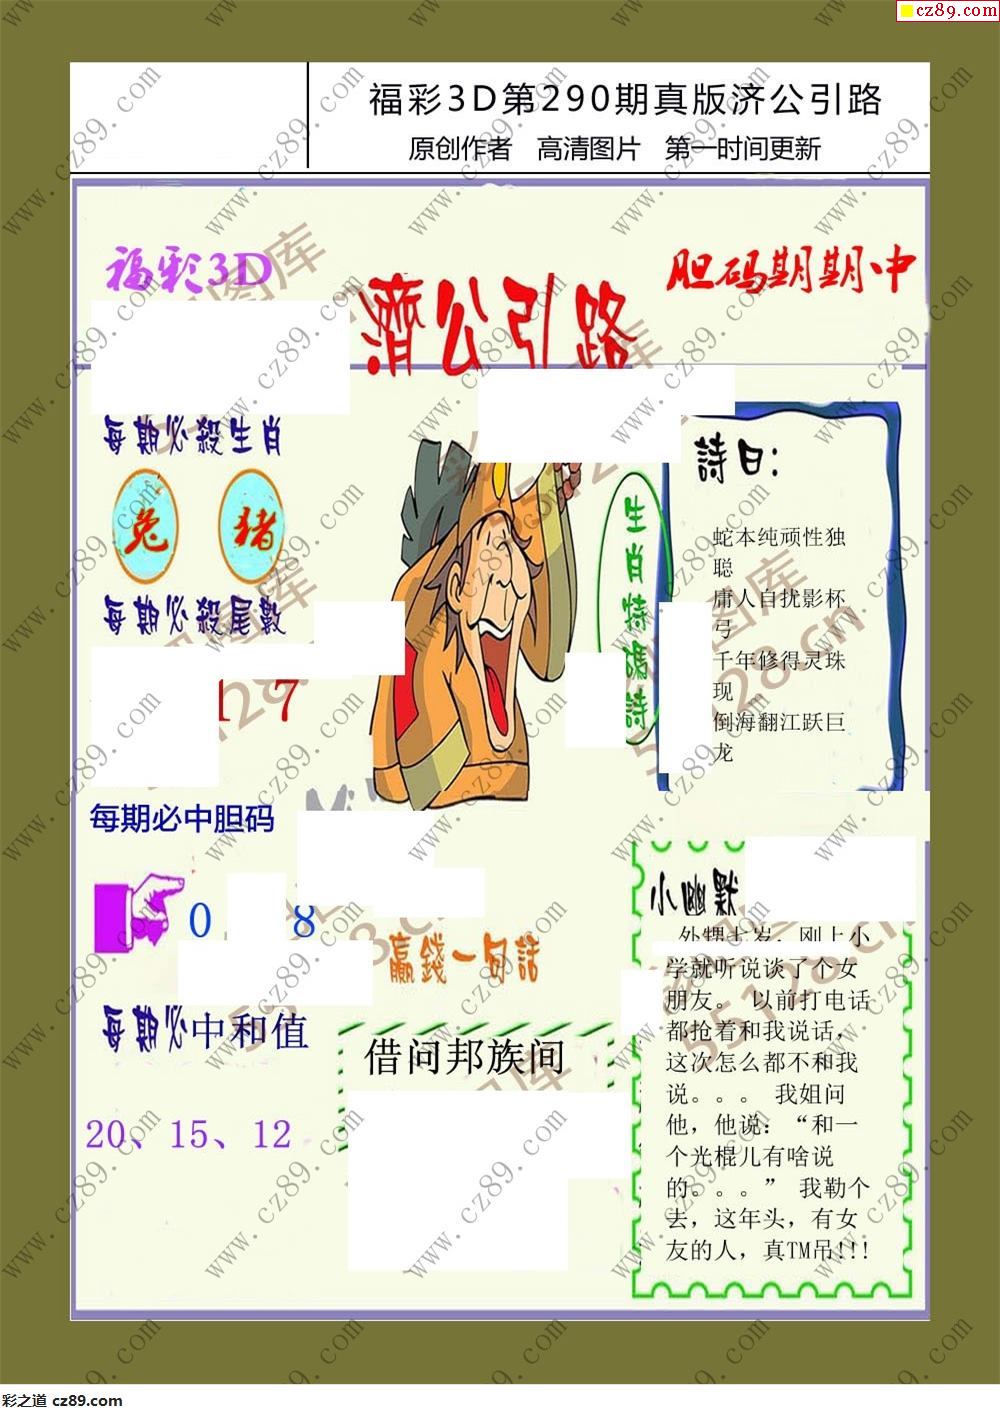 cz89.com
福彩3D第290期真版济公引路
原创作者 高清图片 第一时间更新
福彩3D
濟公引路
胆码期期中
每期必殺生肖
兔 猪
每期必殺尾數
1 7
每期必中胆码
0 8
每期必中和值
20、15、12
生肖特碼詩
詩曰：
蛇本纯顽性独
聪
庸人自扰影杯
弓
千年修得灵珠
现
倒海翻江跃巨
龙
赢錢一句話
借问邦族间
小幽默
外甥七岁，刚上小
学就听说谈了个女
朋友。 以前打电话
都抢着和我说话，
这次怎么都不和我
说。。。 我姐问
他，他说：“和一
个光棍儿有啥说
的。。。” 我勒个
去，这年头，有女
友的人，真TM吊!!!
www.cz89.com
彩之道 cz89.com